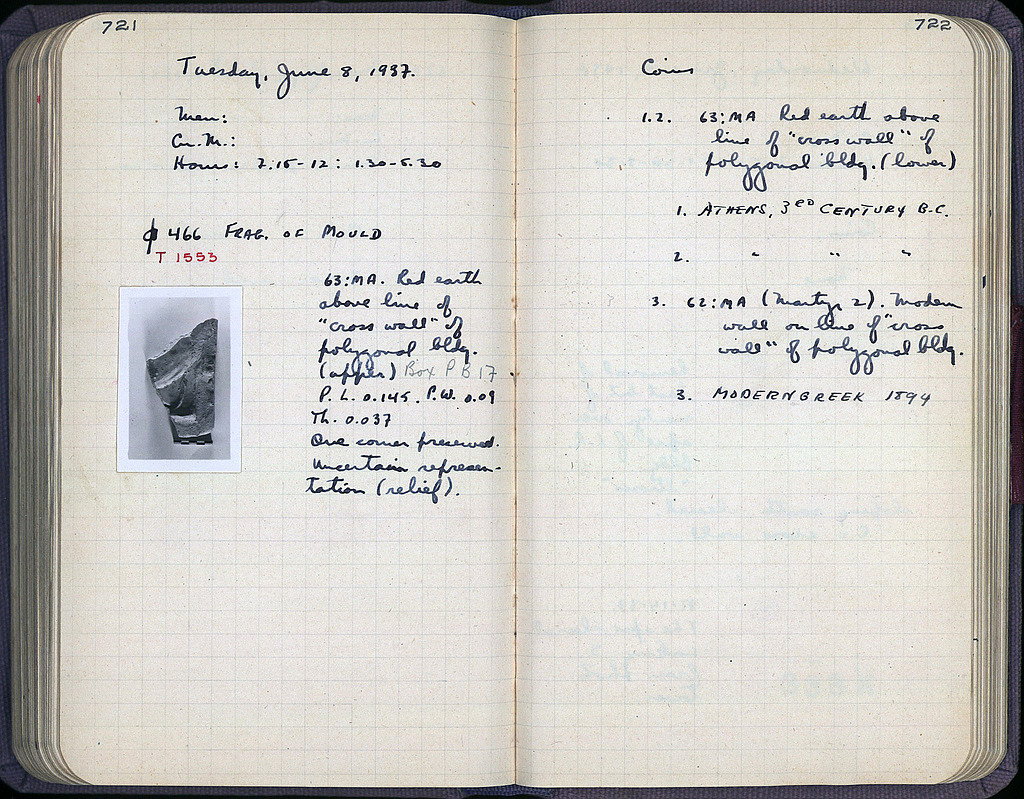 721
Tuesday, June 8, 1937.
Men:
Gr. M.:
Hours: 7.15-12: 1.30-5.30
ϕ 466 FRAG. OF MOULD
T 1553
63:MA. Red earth
above line of
"cross wall" of
polygonal bldg.
(upper) Box PB 17
P. L. 0.145. P.W. 0.09
Th. 0.037
One corner preserved.
Uncertain represen-
tation (relief).
722
Coins
1.2. 63:MA Red earth above
line of "cross wall" of
polygonal bldg. (lower)
1. ATHENS, 3RD CENTURY B.C.
2. " " "
3. 62:MA (Martyr 2). Modern
wall on line of "cross
wall" of polygonal bldg.
3. MODERN GREEK 1894